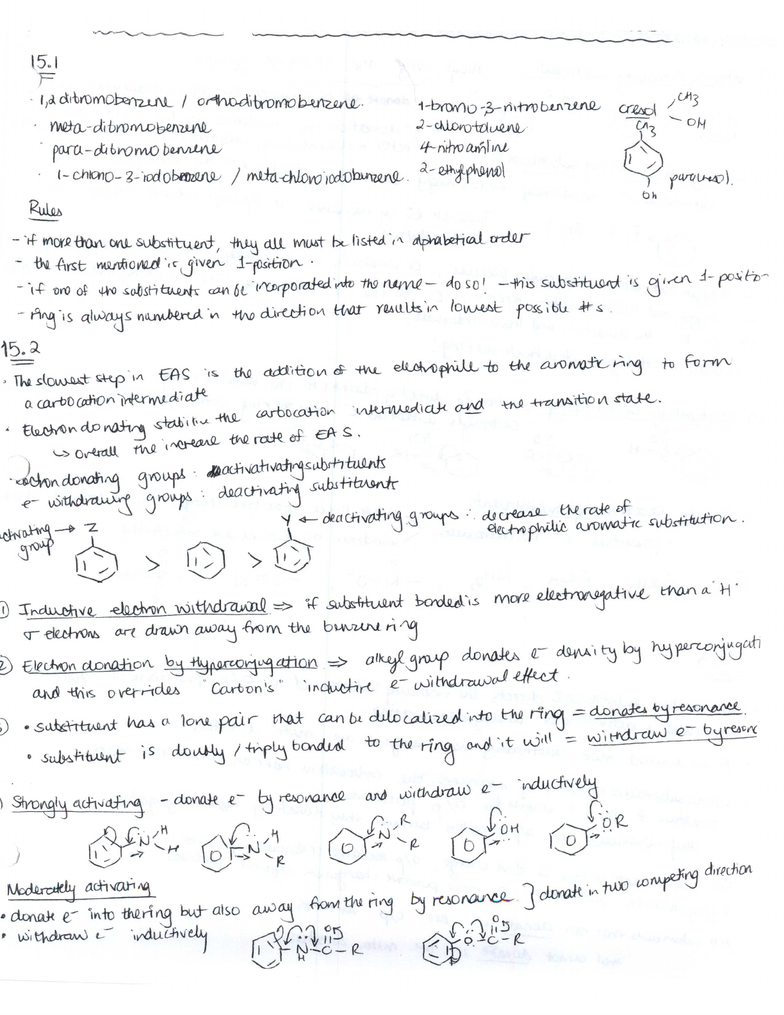 15.1
· 1,2 dibromobenzene / orthodibromobenzene.
· meta-dibromobenzene
· para-dibromobenzene
· 1-chloro-3-iodobenzene / meta-chloroiodobenzene.
1-bromo-3-nitrobenzene
2-chlorotoluene
4-nitroaniline
2-ethylphenol
cresol
CH3
OH
CH3
Oh
paracresol.
Rules
- if more than one substituent, they all must be listed in alphabetical order
- the first mentioned is given 1-position.
- if one of the substituents can be incorporated into the name - do so! - this substituent is given 1-position
- ring is always numbered in the direction that results in lowest possible #s.
15.2
· The slowest step in EAS is the addition of the electrophile to the aromatic ring to form
a carbocation intermediate
· Electron donating stabilize the carbocation intermediate and the transition state.
↳ overall the increase the rate of EAS.
donating groups : activativating substituents
e- withdrawing groups : deactivating substituents
activating → Z
group
Y ← deactivating groups : decrease the rate of
electrophilic aromatic substitution.
> >
① Inductive electron withdrawal ⇒ if substituent bonded is more electronegative than a H.
σ electrons are drawn away from the benzene ring
② Electron donation by Hyperconjugation ⇒ alkyl group donates e- density by hyperconjugati
and this overrides "Carbon's" inductive e- withdrawal effect.
• substituent has a lone pair that can be delocalized into the ring = donates by resonance.
• substituent is doubly / triply bonded to the ring and it will = withdraw e- by resonc
Strongly activating - donate e- by resonance and withdraw e- inductively
N H H
N H R
N R R
OH
OR
Moderately activating
• donate e- into the ring but also away from the ring by resonance. } donate in two competing direction
• withdraw e- inductively
N H - C - R O
O - C - R O